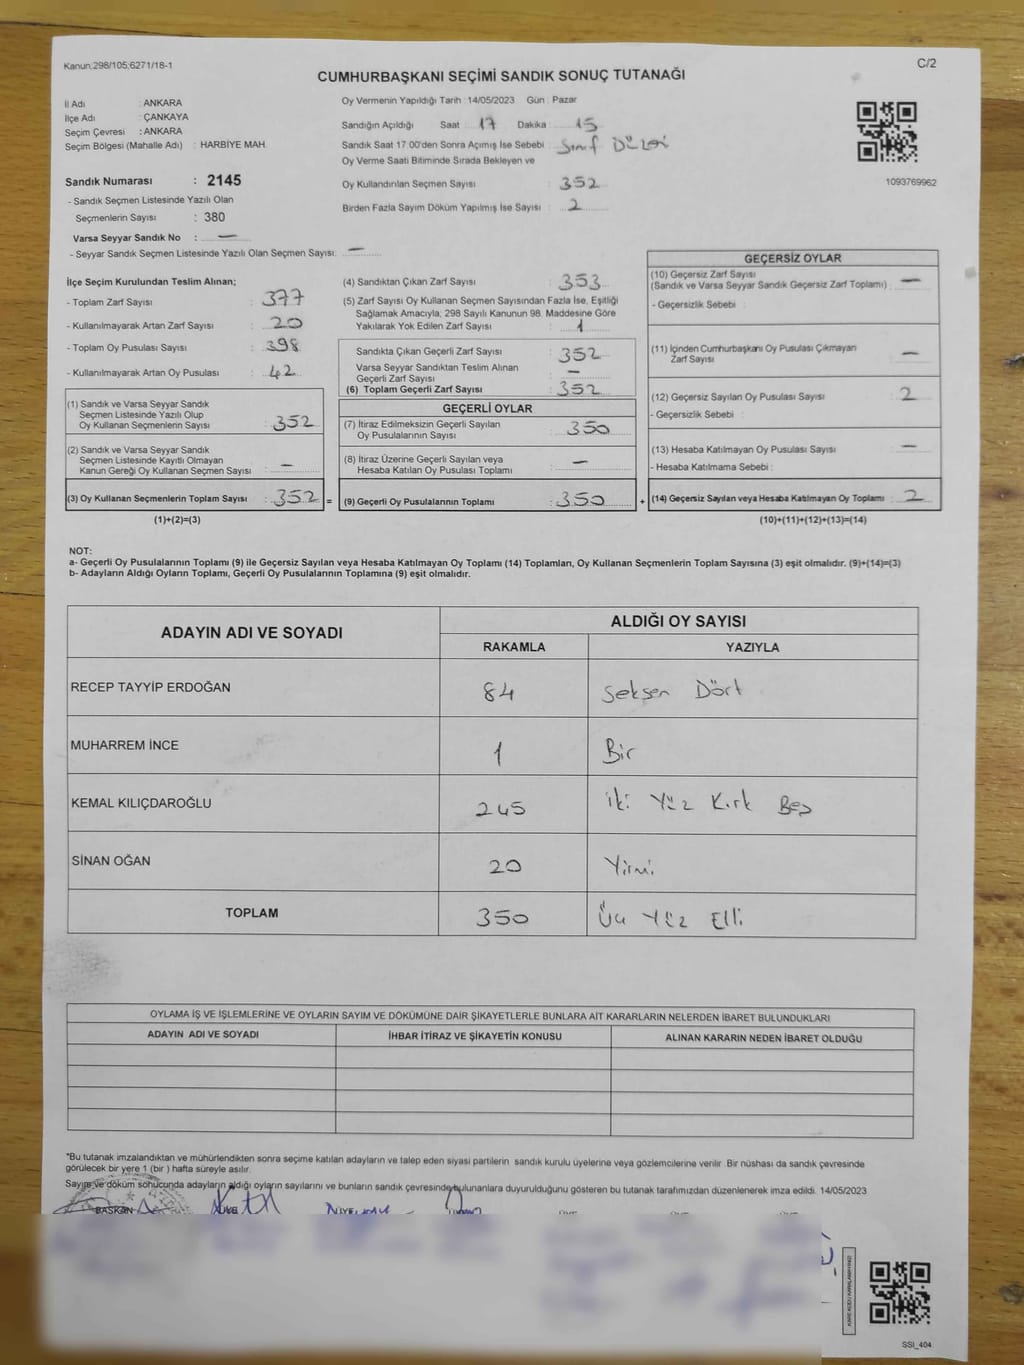 Kanun;298/105;6271/18-1
C/2
CUMHURBAŞKANI SEÇİMİ SANDIK SONUÇ TUTANAĞI
İl Adı : ANKARA
İlçe Adı : ÇANKAYA
Seçim Çevresi : ANKARA
Seçim Bölgesi (Mahalle Adı) : HARBİYE MAH.
Sandık Numarası : 2145
- Sandık Seçmen Listesinde Yazılı Olan
Seçmenlerin Sayısı : 380
Varsa Seyyar Sandık No : —
- Seyyar Sandık Seçmen Listesinde Yazılı Olan Seçmen Sayısı: —
Oy Vermenin Yapıldığı Tarih : 14/05/2023 Gün : Pazar
Sandığın Açıldığı Saat : 17 Dakika : 15
Sandık Saat 17.00'den Sonra Açımış İse Sebebi : Sınıf Düzeni
Oy Verme Saati Bitiminde Sırada Bekleyen ve
Oy Kullandırılan Seçmen Sayısı : 352
Birden Fazla Sayım Döküm Yapılmış İse Sayısı : 2
1093769962
İlçe Seçim Kurulundan Teslim Alınan;
- Toplam Zarf Sayısı : 377
- Kullanılmayarak Artan Zarf Sayısı : 20
- Toplam Oy Pusulası Sayısı : 398
- Kullanılmayarak Artan Oy Pusulası : 42
(1) Sandık ve Varsa Seyyar Sandık
Seçmen Listesinde Yazılı Olup
Oy Kullanan Seçmenlerin Sayısı : 352
(2) Sandık ve Varsa Seyyar Sandık
Seçmen Listesinde Kayıtlı Olmayan
Kanun Gereği Oy Kullanan Seçmen Sayısı : —
(3) Oy Kullanan Seçmenlerin Toplam Sayısı : 352 =
(1)+(2)=(3)
(4) Sandıktan Çıkan Zarf Sayısı : 353
(5) Zarf Sayısı Oy Kullanan Seçmen Sayısından Fazla İse, Eşitliği
Sağlamak Amacıyla; 298 Sayılı Kanunun 98. Maddesine Göre
Yakılarak Yok Edilen Zarf Sayısı : 1
Sandıkta Çıkan Geçerli Zarf Sayısı : 352
Varsa Seyyar Sandıktan Teslim Alınan
Geçerli Zarf Sayısı : —
(6) Toplam Geçerli Zarf Sayısı : 352
GEÇERLİ OYLAR
(7) İtiraz Edilmeksizin Geçerli Sayılan
Oy Pusulalarının Sayısı : 350
(8) İtiraz Üzerine Geçerli Sayılan veya
Hesaba Katılan Oy Pusulası Toplamı : —
(9) Geçerli Oy Pusulalarının Toplamı : 350 +
GEÇERSİZ OYLAR
(10) Geçersiz Zarf Sayısı
(Sandık ve Varsa Seyyar Sandık Geçersiz Zarf Toplamı) : —
- Geçersizlik Sebebi :
(11) İçinden Cumhurbaşkanı Oy Pusulası Çıkmayan
Zarf Sayısı : —
(12) Geçersiz Sayılan Oy Pusulası Sayısı : 2
- Geçersizlik Sebebi :
(13) Hesaba Katılmayan Oy Pusulası Sayısı : —
- Hesaba Katılmama Sebebi :
(14) Geçersiz Sayılan veya Hesaba Katılmayan Oy Toplamı : 2
(10)+(11)+(12)+(13)=(14)
NOT:
a- Geçerli Oy Pusulalarının Toplamı (9) ile Geçersiz Sayılan veya Hesaba Katılmayan Oy Toplamı (14) Toplamları, Oy Kullanan Seçmenlerin Toplam Sayısına (3) eşit olmalıdır. (9)+(14)=(3)
b- Adayların Aldığı Oyların Toplamı, Geçerli Oy Pusulalarının Toplamına (9) eşit olmalıdır.
ADAYIN ADI VE SOYADI
ALDIĞI OY SAYISI
RAKAMLA YAZIYLA
RECEP TAYYİP ERDOĞAN 84 Seksen Dört
MUHARREM İNCE 1 Bir
KEMAL KILIÇDAROĞLU 245 İki Yüz Kırk Beş
SİNAN OĞAN 20 Yirmi
TOPLAM 350 Üç Yüz Elli
OYLAMA İŞ VE İŞLEMLERİNE VE OYLARIN SAYIM VE DÖKÜMÜNE DAİR ŞİKAYETLERLE BUNLARA AİT KARARLARIN NELERDEN İBARET BULUNDUKLARI
ADAYIN ADI VE SOYADI İHBAR İTİRAZ VE ŞİKAYETİN KONUSU ALINAN KARARIN NEDEN İBARET OLDUĞU
*Bu tutanak imzalandıktan ve mühürlendikten sonra seçime katılan adayların ve talep eden siyasi partilerin sandık kurulu üyelerine veya gözlemcilerine verilir. Bir nüshası da sandık çevresinde
görülecek bir yere 1 (bir ) hafta süreyle asılır.
Sayım ve döküm sonucunda adayların aldığı oyların sayılarını ve bunların sandık çevresinde bulunanlara duyurulduğunu gösteren bu tutanak tarafımızdan düzenlenerek imza edildi. 14/05/2023
BAŞKAN
SSI_404